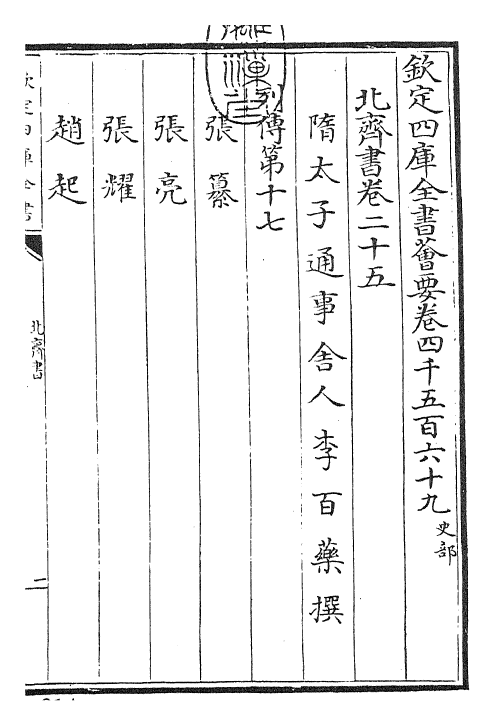 欽定四庫全書薈要卷四千五百六十九 史部
北齊書卷二十五
隋太子通事舍人李百藥撰
列傳第十七
張纂
張亮
張耀
趙起
欽定四庫全書
北齊書